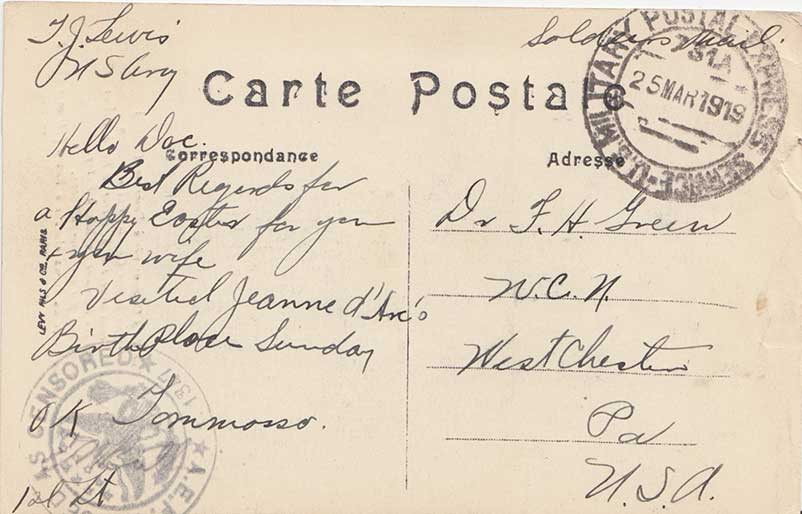 T. J. Lewis
U S Army
Soldiers Mail.
U.S. MILITARY POSTAL EXPRESS SERVICE
731A
25 MAR 1919
Carte Postale
Correspondance
Adresse
Hello Doc.
Best Regards for
a Happy Easter for you
+ your wife
Visited Jeanne d'Arc's
Birth Place Sunday
OK Tommasso.
1st Lt
LEVY FILS & Cie. PARIS
Dr F. H. Green
W.C.N.
West Chester
Pa
U.S.A.
CENSORED
A.E.F.